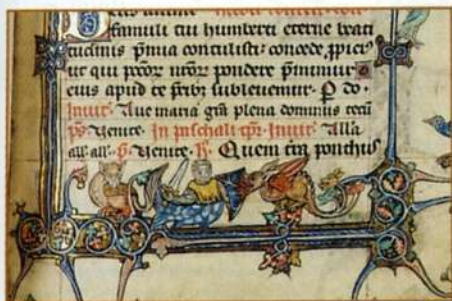 famuli tui humberti eterne beati
tudinis p̄mia contulisti: concede, ꝓpici᷒
ut qui pc̄oꝝ nr̄oꝝ pondere p̄mimur
eius apud te p̄cib᷒ subleuemur. P do.
Inuit. Aue maria gr̄a plena dominus tecū
p̄s Uenite. In paschali tp̄r. Inuit. Alla
all. all. p̄. Uenite. R. Quem t̄ra ponthus